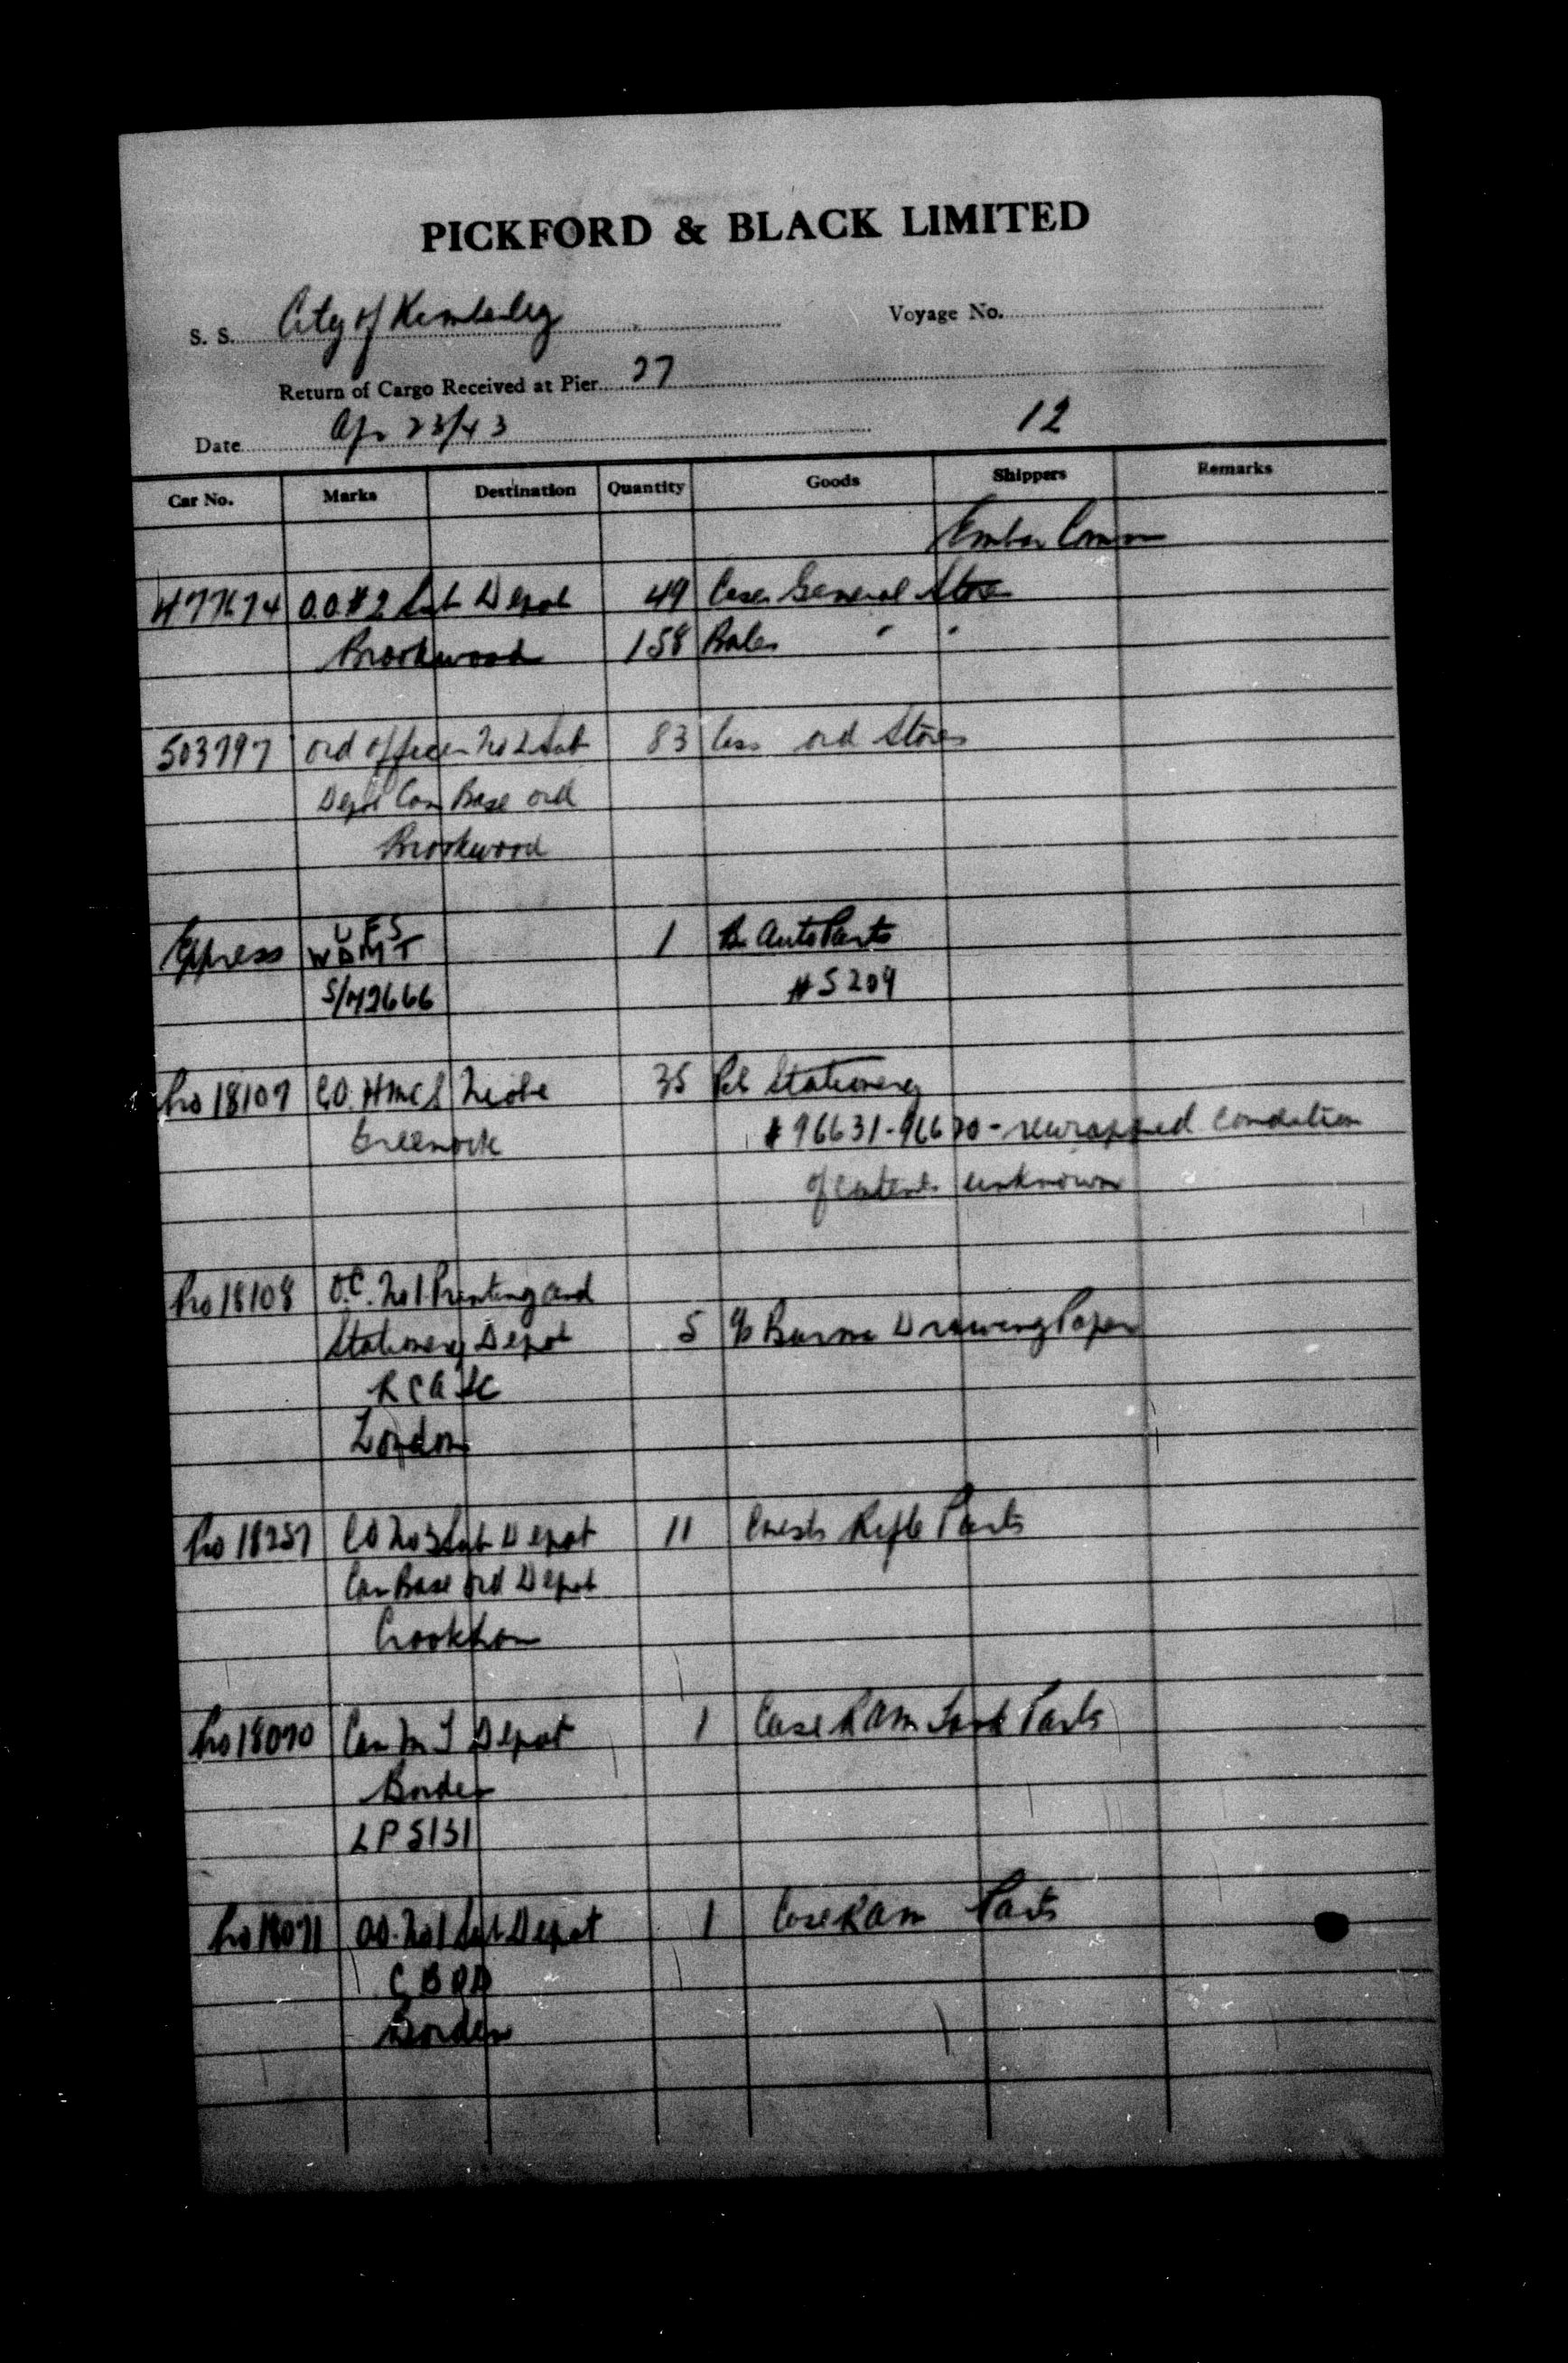 PICKFORD & BLACK LIMITED
S. S. City of Kimberley Voyage No.
Return of Cargo Received at Pier 27
Date Apr 23/43 12
Car No. Marks Destination Quantity Goods Shippers Remarks
Embar Comm
477674 O.O. #2 Sub Depot 49 Cases General Stores
Brookwood 158 Bales " "
503797 Ord Officer No 2 Sub 83 Cses Ord Stores
Depot Can Base Ord
Brookwood
Express U F S 1 Bx Auto Parts
W D M T
S/M2666 #5209
Pro 18107 C.O. HMCS Niobe 35 Pcls Stationery
Greenock #96631-96670 - rewrapped condition
of contents unknown
Pro 18108 O.C. No 1 Printing and
Stationery Depot 5 Drawing Paper
R C A S C
London
Pro 18257 CO No 3 Sub Depot 11 Chests Rifle Parts
Can Base Ord Depot
Crookham
Pro 18070 Can M T Depot 1 Case RAM Tank Parts
Borden
LP 5131
Pro 18071 OO. No 1 Sub Depot 1 Case RAM Parts
C B O D
Borden